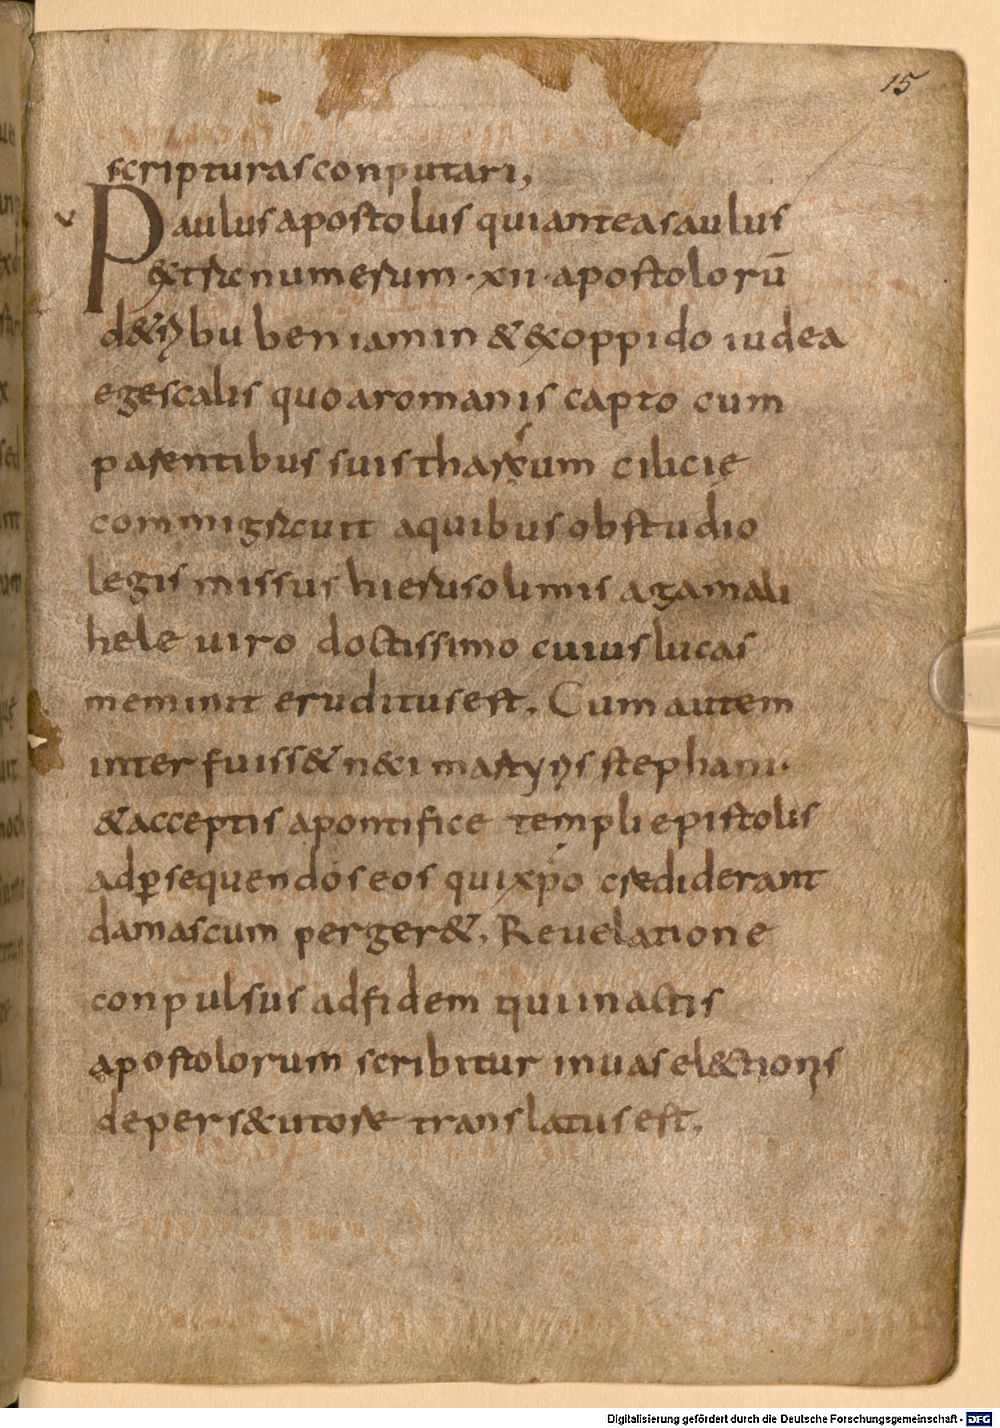 15
scripturas conputari,
v Paulus apostolus qui antea saulus
extra numerum · xii · apostolorū
de tribu beniamin & ex oppido iudea
e gescalis quo a romanis capto cum
parentibus suis tharsum cilicię
commigravit a quibus ob studio
legis missus hierusolimis a gamali
hele viro doctissimo cuius lucas
meminit eruditus est. Cum autem
interfuiss& neci martyris stephani·
& acceptis a pontifice templi epistolis
ad p̲sequendos eos qui xp̄o crediderant
damascum perger&. Revelatione
conpulsus ad fidem qui in actis
apostolorum scribitur in vas electionis
de persecutore translatus est.
Digitalisierung gefördert durch die Deutsche Forschungsgemeinschaft - DFG